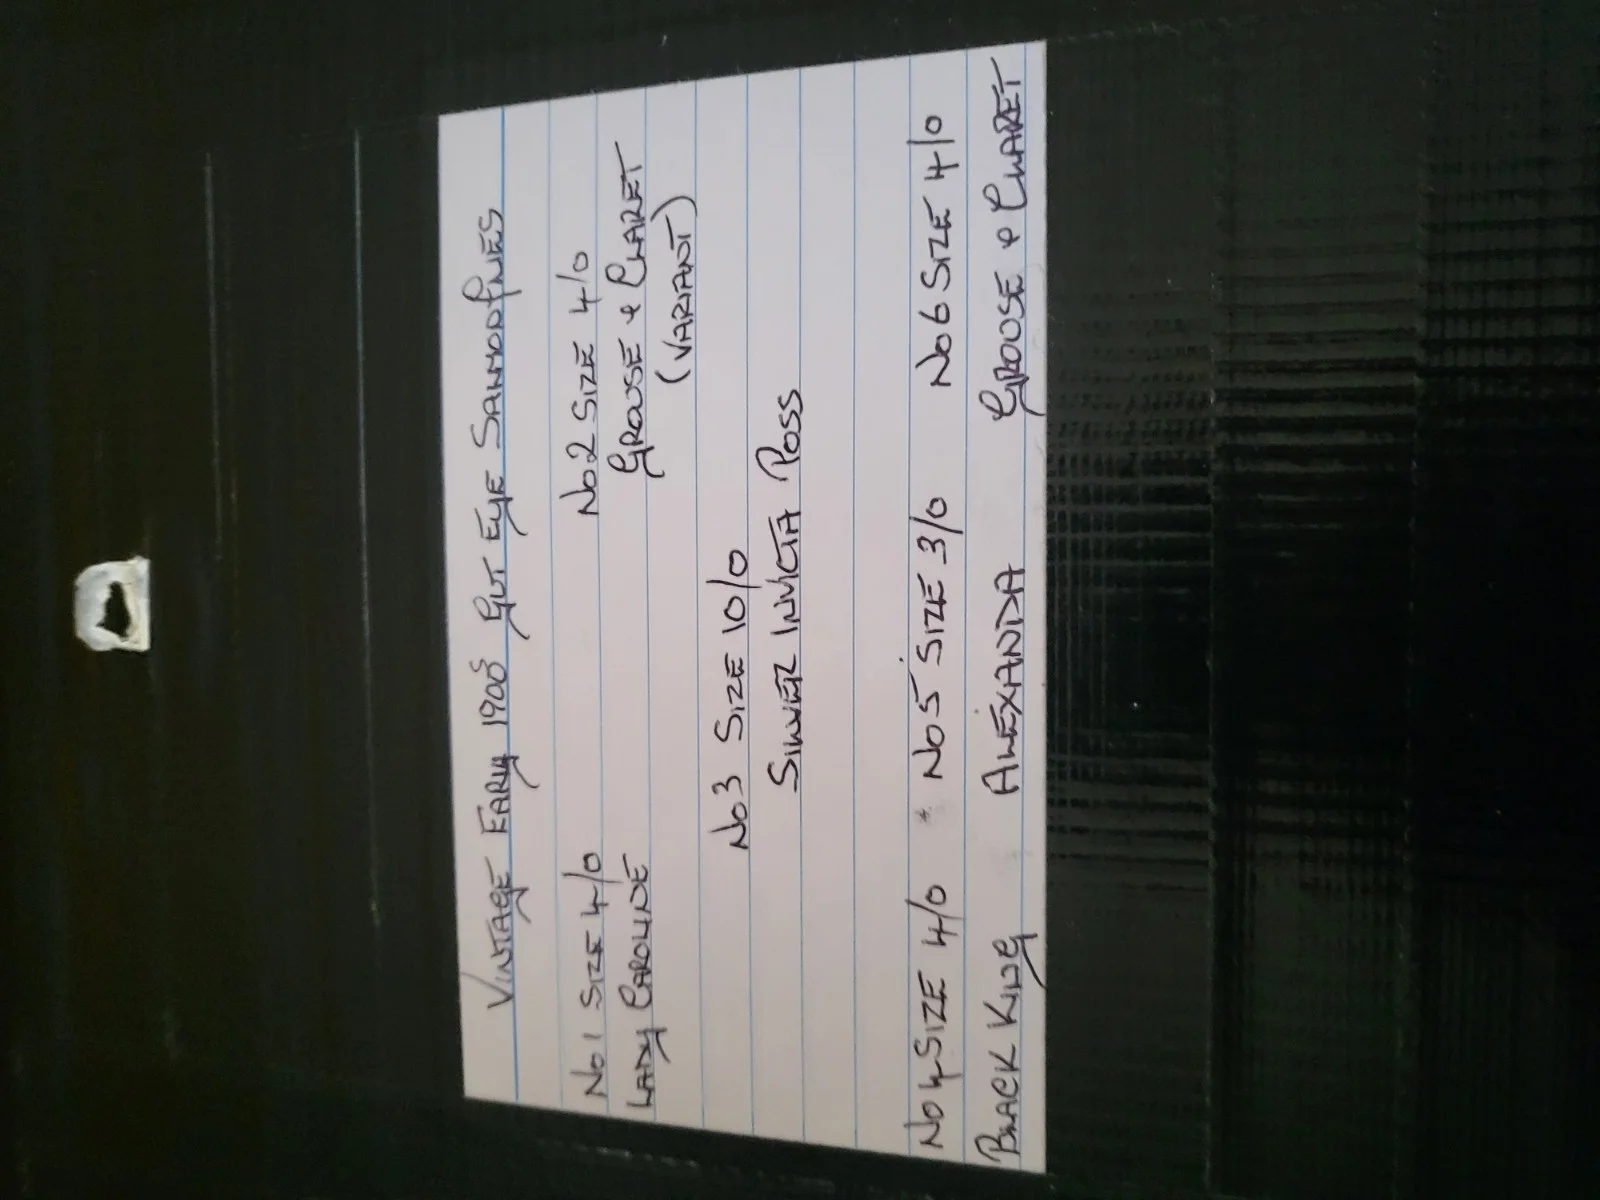 VINTAGE EARLY 1900S GUT EYE SALMON FLIES
No 1 SIZE 4/0
LADY CAROLINE
No 2 SIZE 4/0
GROUSE & CLARET
(VARIANT)
No 3 SIZE 10/0
SILVER INVICTA POSS
No 4 SIZE 4/0
BLACK KING
No 5 SIZE 3/0
ALEXANDA
No 6 SIZE 4/0
GROOSE & CLARET